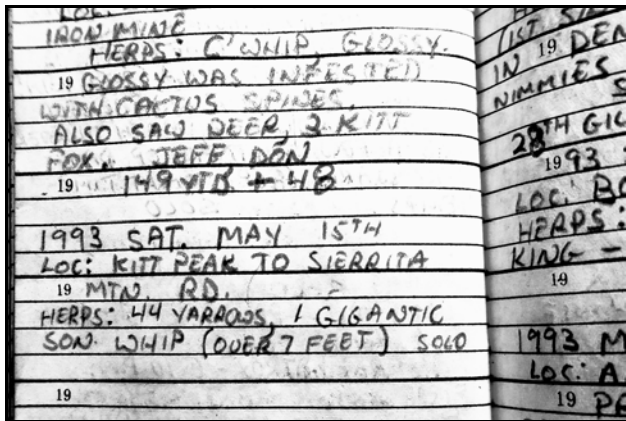 LOC.
IRON MINE
HERPS: C' WHIP, GLOSSY.
19 GLOSSY WAS INFESTED
WITH CACTUS SPINES.
ALSO SAW DEER, 2 KITT
FOX. JEFF DON
19 149 YTD + 48
1993 SAT. MAY 15TH
LOC: KITT PEAK TO SIERRITA
19 MTN. RD.
HERPS: 44 YARROWS, 1 GIGANTIC
SON. WHIP (OVER 7 FEET) SOLO
19
(1ST
IN 19 DEN
NIMMIES
28TH GIL
1993
LOC: BO
HERPS:
KING -
19
1993 M
LOC: A
19 PA